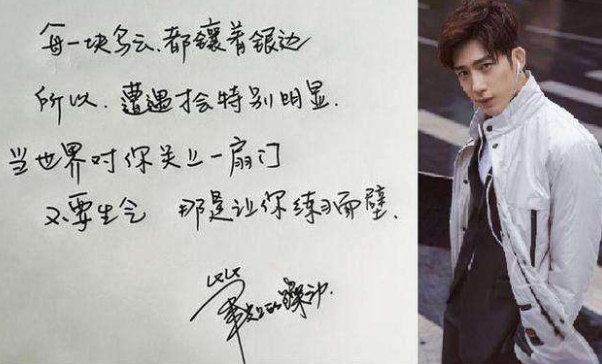 每一块乌云,都镶着银边
所以,遭遇才会特别明显.
当世界对你关上一扇门
不要生气 那是让你练习面壁.
的躁动.